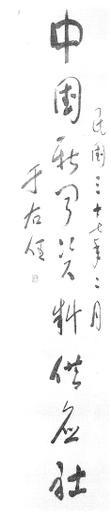 中国新闻资料供应社
民國三十七年二月
于右任